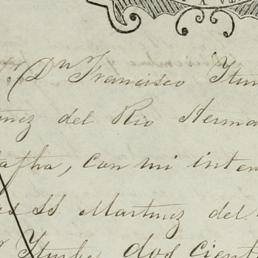 Dn Francisco Itur
nez del Rio Herma
con mi inter
SS Martinez del
Iturbe dos cient